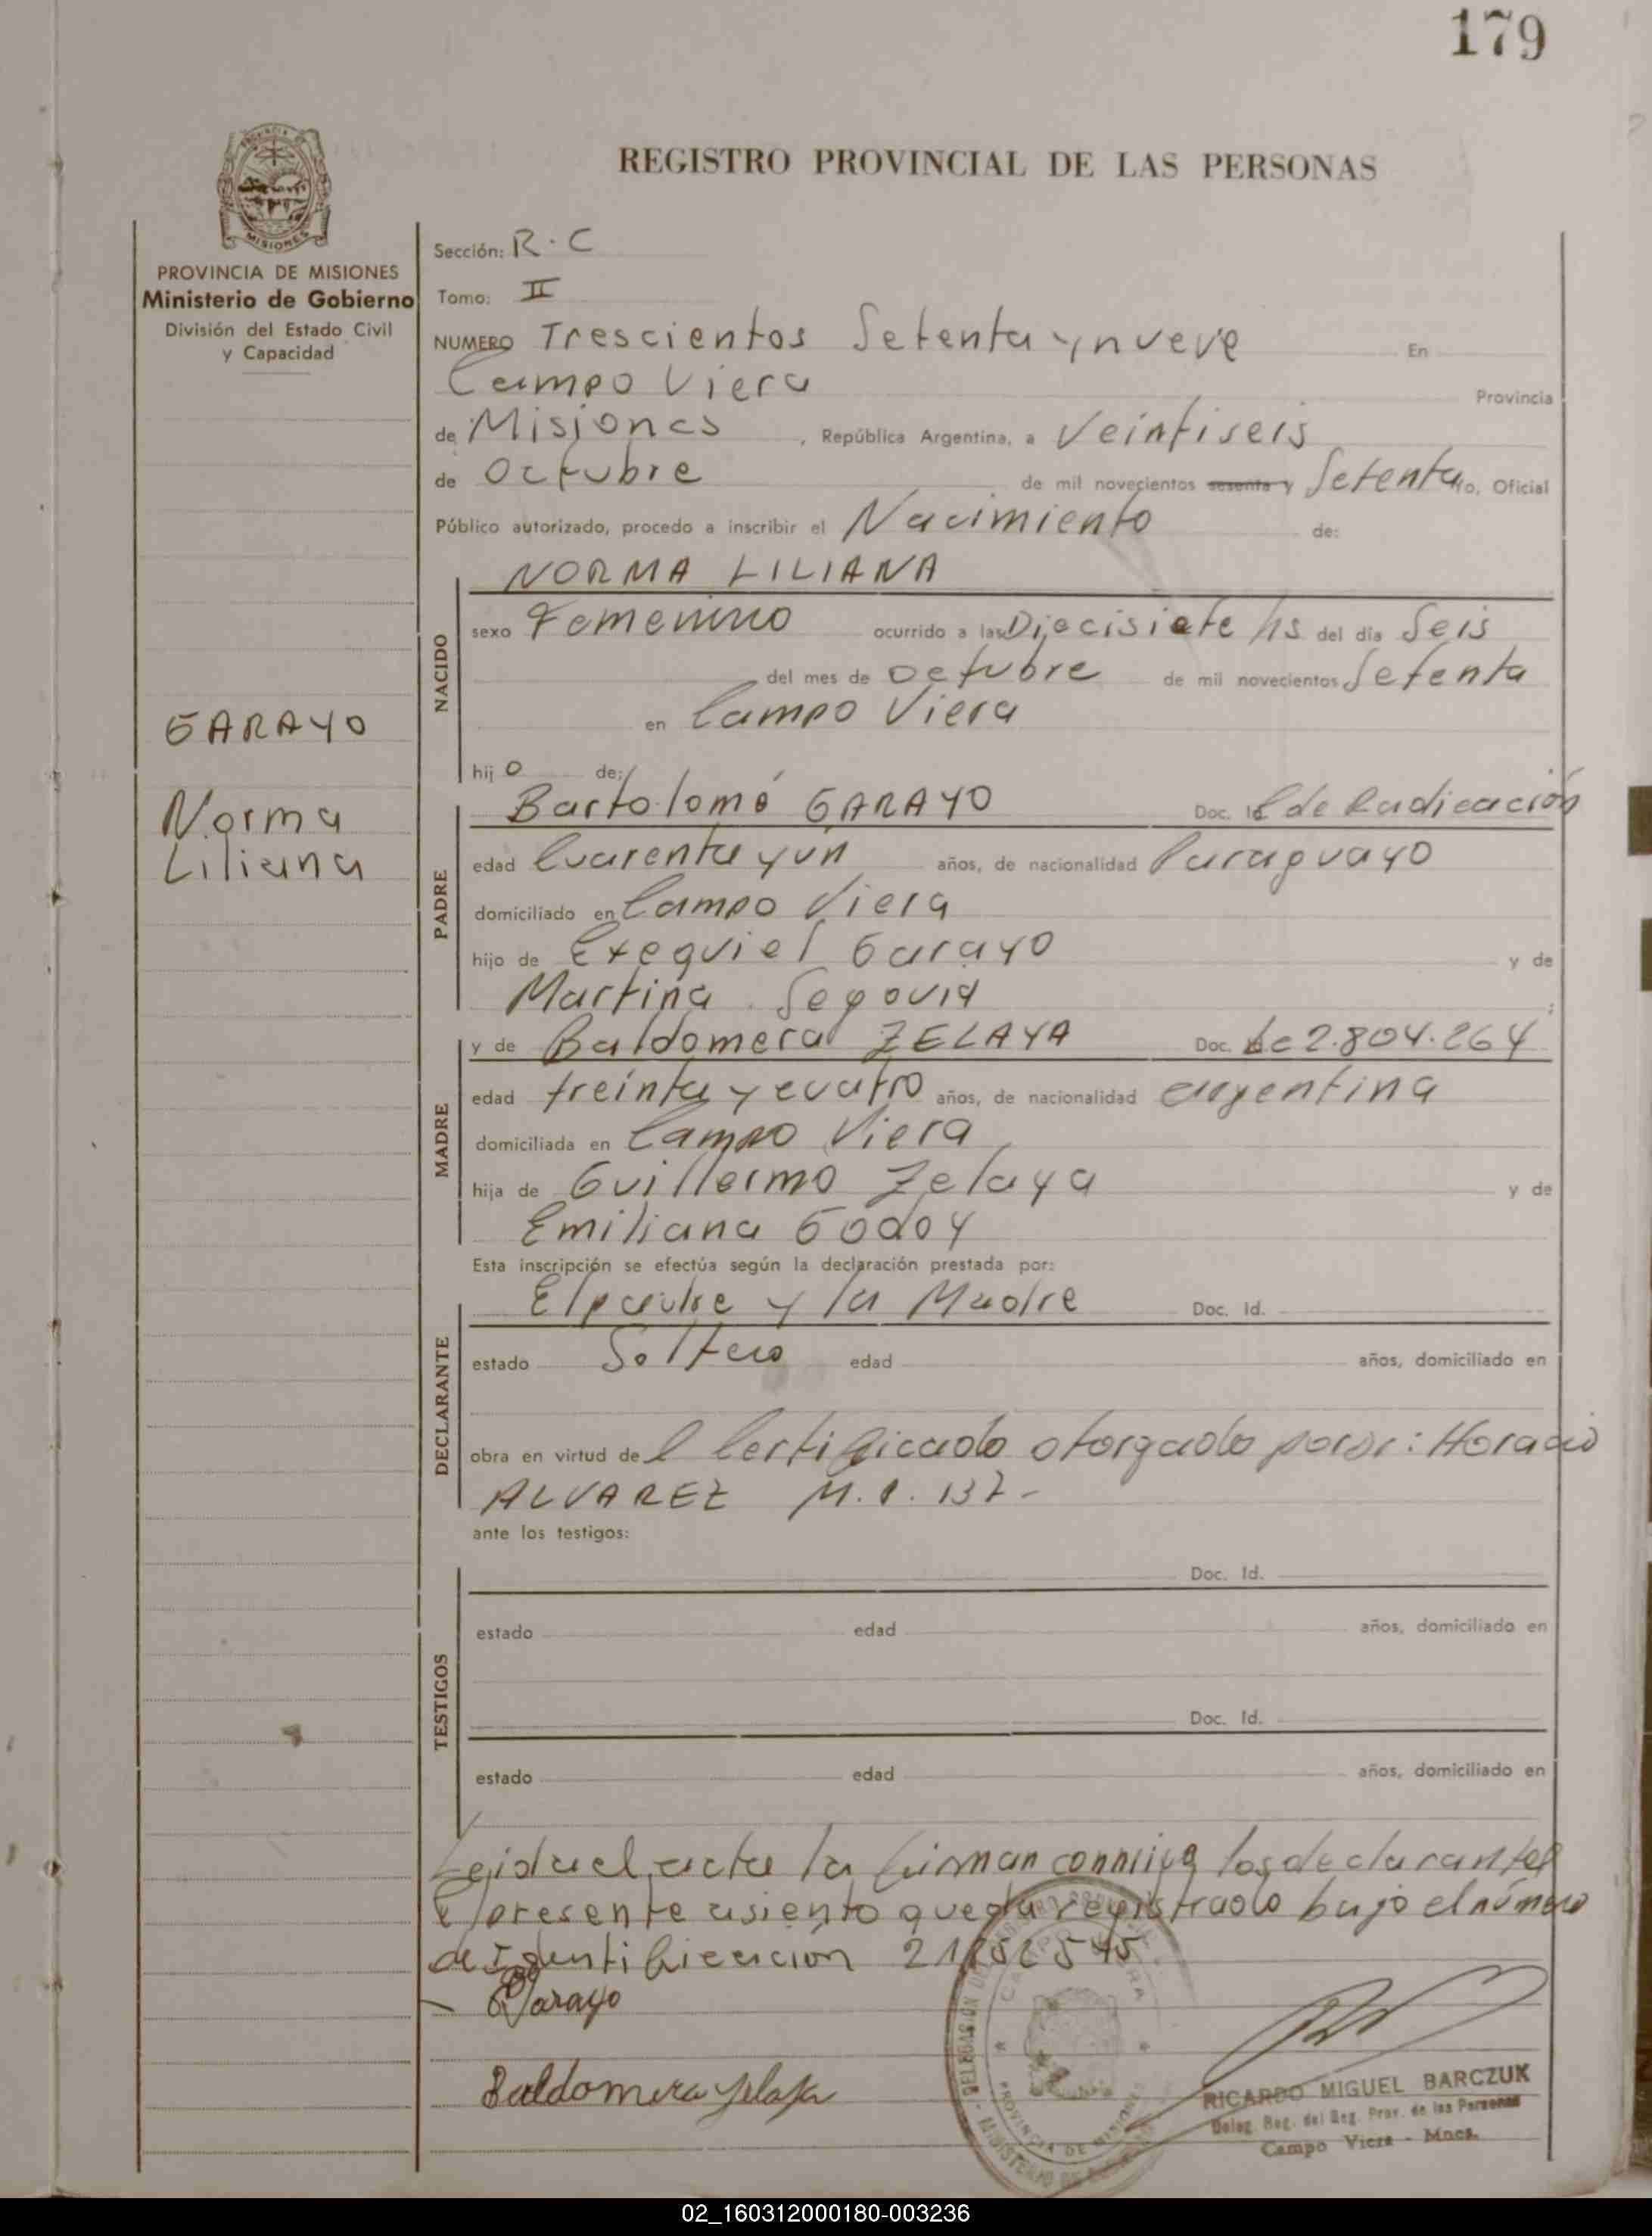 179
REGISTRO PROVINCIAL DE LAS PERSONAS
PROVINCIA DE MISIONES
Ministerio de Gobierno
División del Estado Civil
y Capacidad
GARAYO
Norma
Liliana
Sección: R.C
Tomo: II
NUMERO Trescientos Setenta y nueve En
Campo Viera Provincia
de Misiones, República Argentina, a Veintiseis
de Octubre de mil novecientos sesenta y Setenta Yo, Oficial
Público autorizado, procedo a inscribir el Nacimiento de:
NACIDO
NORMA LILIANA
sexo Femenino ocurrido a las Diecisiete hs del día Seis
del mes de Octubre de mil novecientos Setenta
en Campo Viera
hijo de:
PADRE
Bartolomé GARAYO Doc. Id de Radicación
edad Cuarenta y un años, de nacionalidad Paraguayo
domiciliado en Campo Viera
hijo de Exequiel Garayo y de
Martina Segovia;
MADRE
y de Baldomera ZELAYA Doc. 2.804.264
edad treinta y cuatro años, de nacionalidad argentina
domiciliada en Campo Viera
hija de Guillermo Zelaya y de
Emiliana Godoy
Esta inscripción se efectúa según la declaración prestada por:
DECLARANTE
El padre y la Madre Doc. Id.
estado Soltero edad años, domiciliado en
obra en virtud del Certificado otorgado por Dr: Horacio
ALVAREZ M.P. 137-
ante los testigos:
TESTIGOS
Doc. Id.
estado edad años, domiciliado en
Doc. Id.
estado edad años, domiciliado en
Leida el acta la firman conmigo los declarantes
El presente asiento queda registrado bajo el número
de Identificación
Garayo
Baldomera Zelaya
RICARDO MIGUEL BARCZUK
Deleg. Reg. del Reg. Prov. de las Personas
Campo Viera - Mnes.
02_160312000180-003236